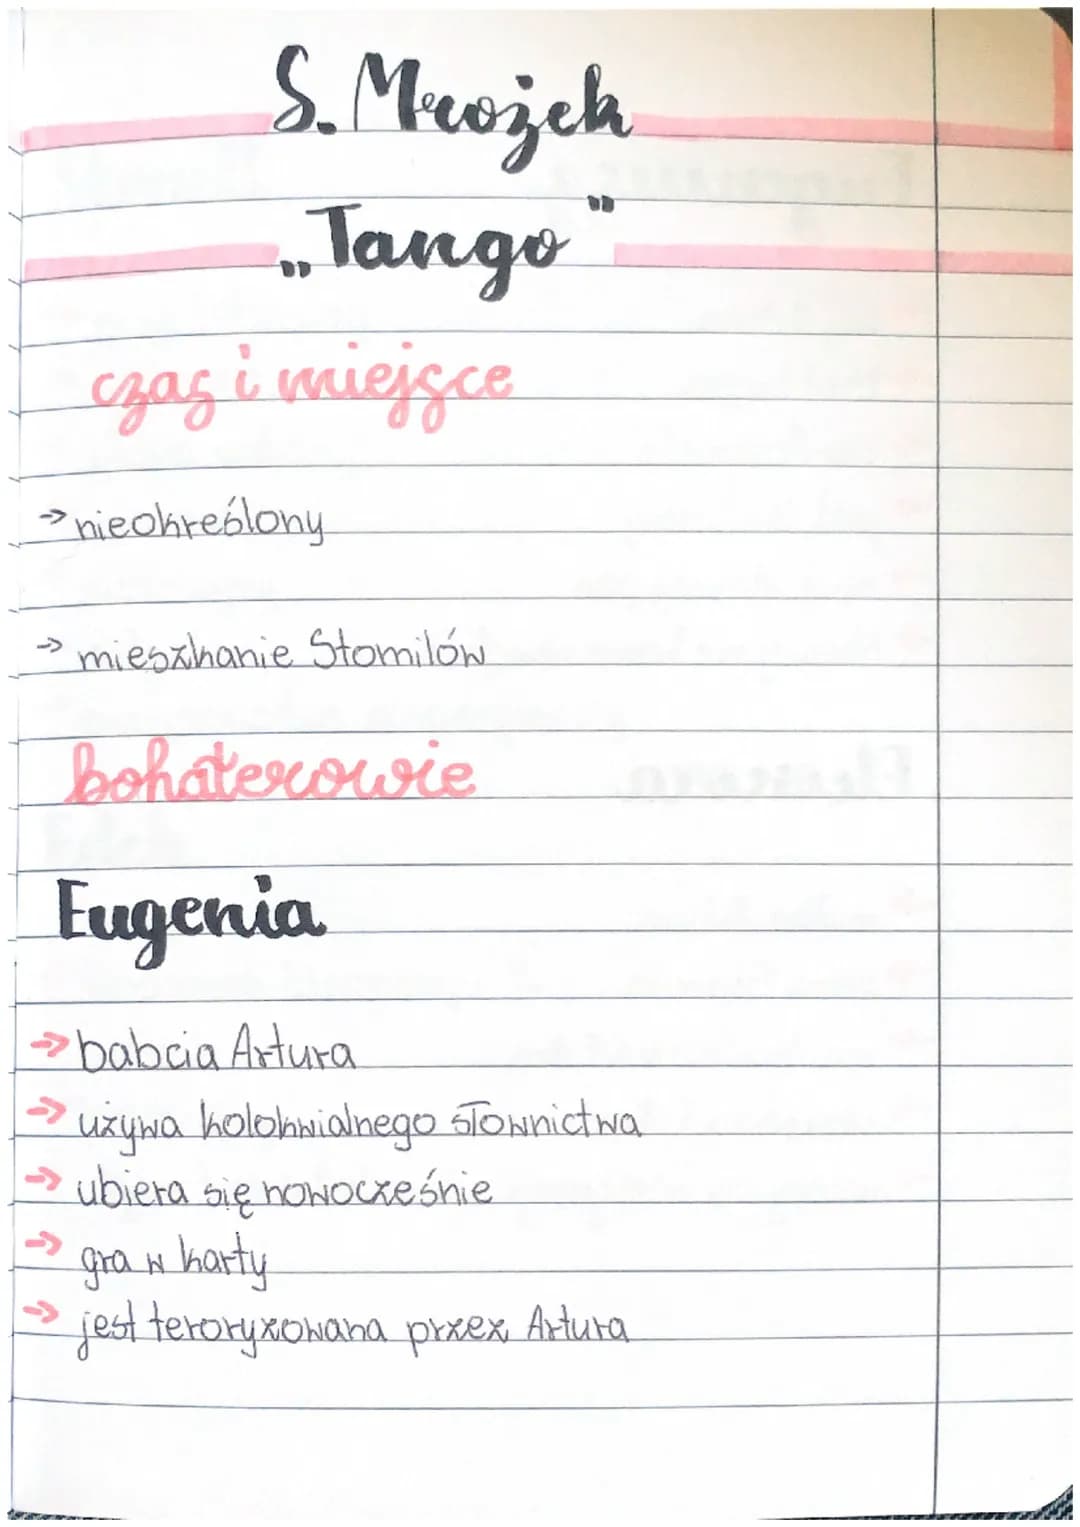 S. Mrożek
„Tango"
czas i miejsce
→ nieokreślony
→ mieszkanie Stomilów
bohaterowie
Eugenia
→ babcia Artura
→ używa kolokwialnego słownictwa
→ ubiera się nowocześnie
→ gra w karty
→ jest teroryzowana przez Artura